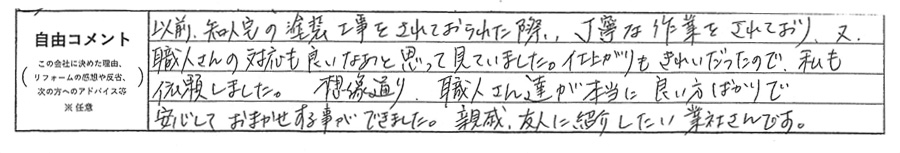 自由コメント
この会社に決めた理由、
リフォームの感想や反省、
次の方へのアドバイス等
※ 任意
以前、知人宅の塗装工事をされておられた際、丁寧な作業をされており、又、
職人さんの対応も良いなあと思って見ていました。仕上がりもきれいだったので、私も
依頼しました。 想像通り、職人さん達が本当に良い方ばかりで
安心しておまかせする事ができました。親戚、友人に紹介したい業社さんです。